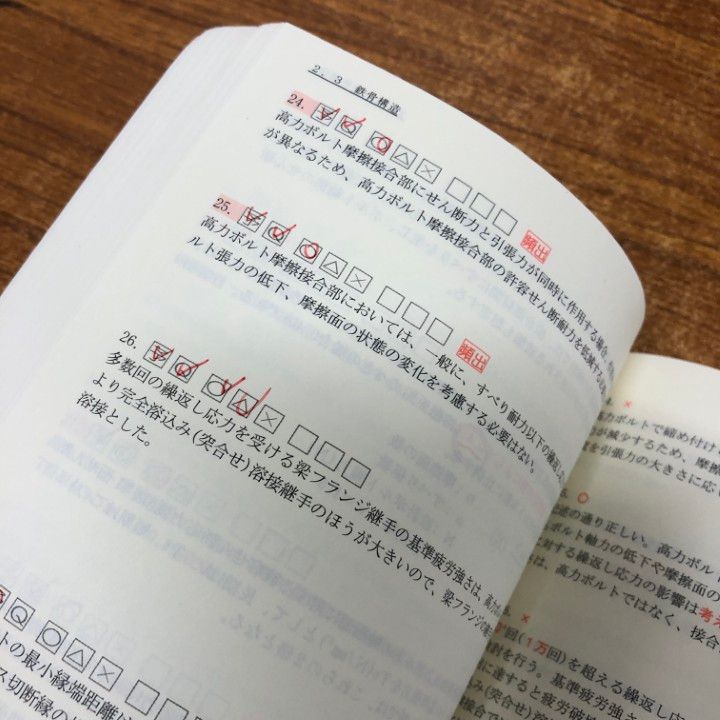 2．3　鉄骨構造
24.
頻出
高力ボルト摩擦接合部にせん断力と引張力が同時に作用する場合、
が異なるため、高力ボルト摩擦接合部の許容せん断耐力を低減する
25.
頻出
高力ボルト摩擦接合部においては、一般に、すべり耐力以下の繰返し
ルト張力の低下、摩擦面の状態の変化を考慮する必要はない。
26.
多数回の繰返し応力を受ける梁フランジ継手の基準疲労強さは、高力
より完全溶込み(突合せ)溶接継手のほうが大きいので、梁フランジの継手
溶接とした。
トの最小縁端距離は
ス切断縁の
×
高力ボルトで締め付け
が減少するため、摩擦
を引張力の大きさに応
○
述の通り正しい。高力ボルト
ボルト軸力の低下や摩擦面の
対する繰返し応力の影響は考え
は、高力ボルトではなく、接合
回(1万回)を超える繰返し応
討を行う。基準疲労強
に達すると疲労破
み(突合せ)溶接